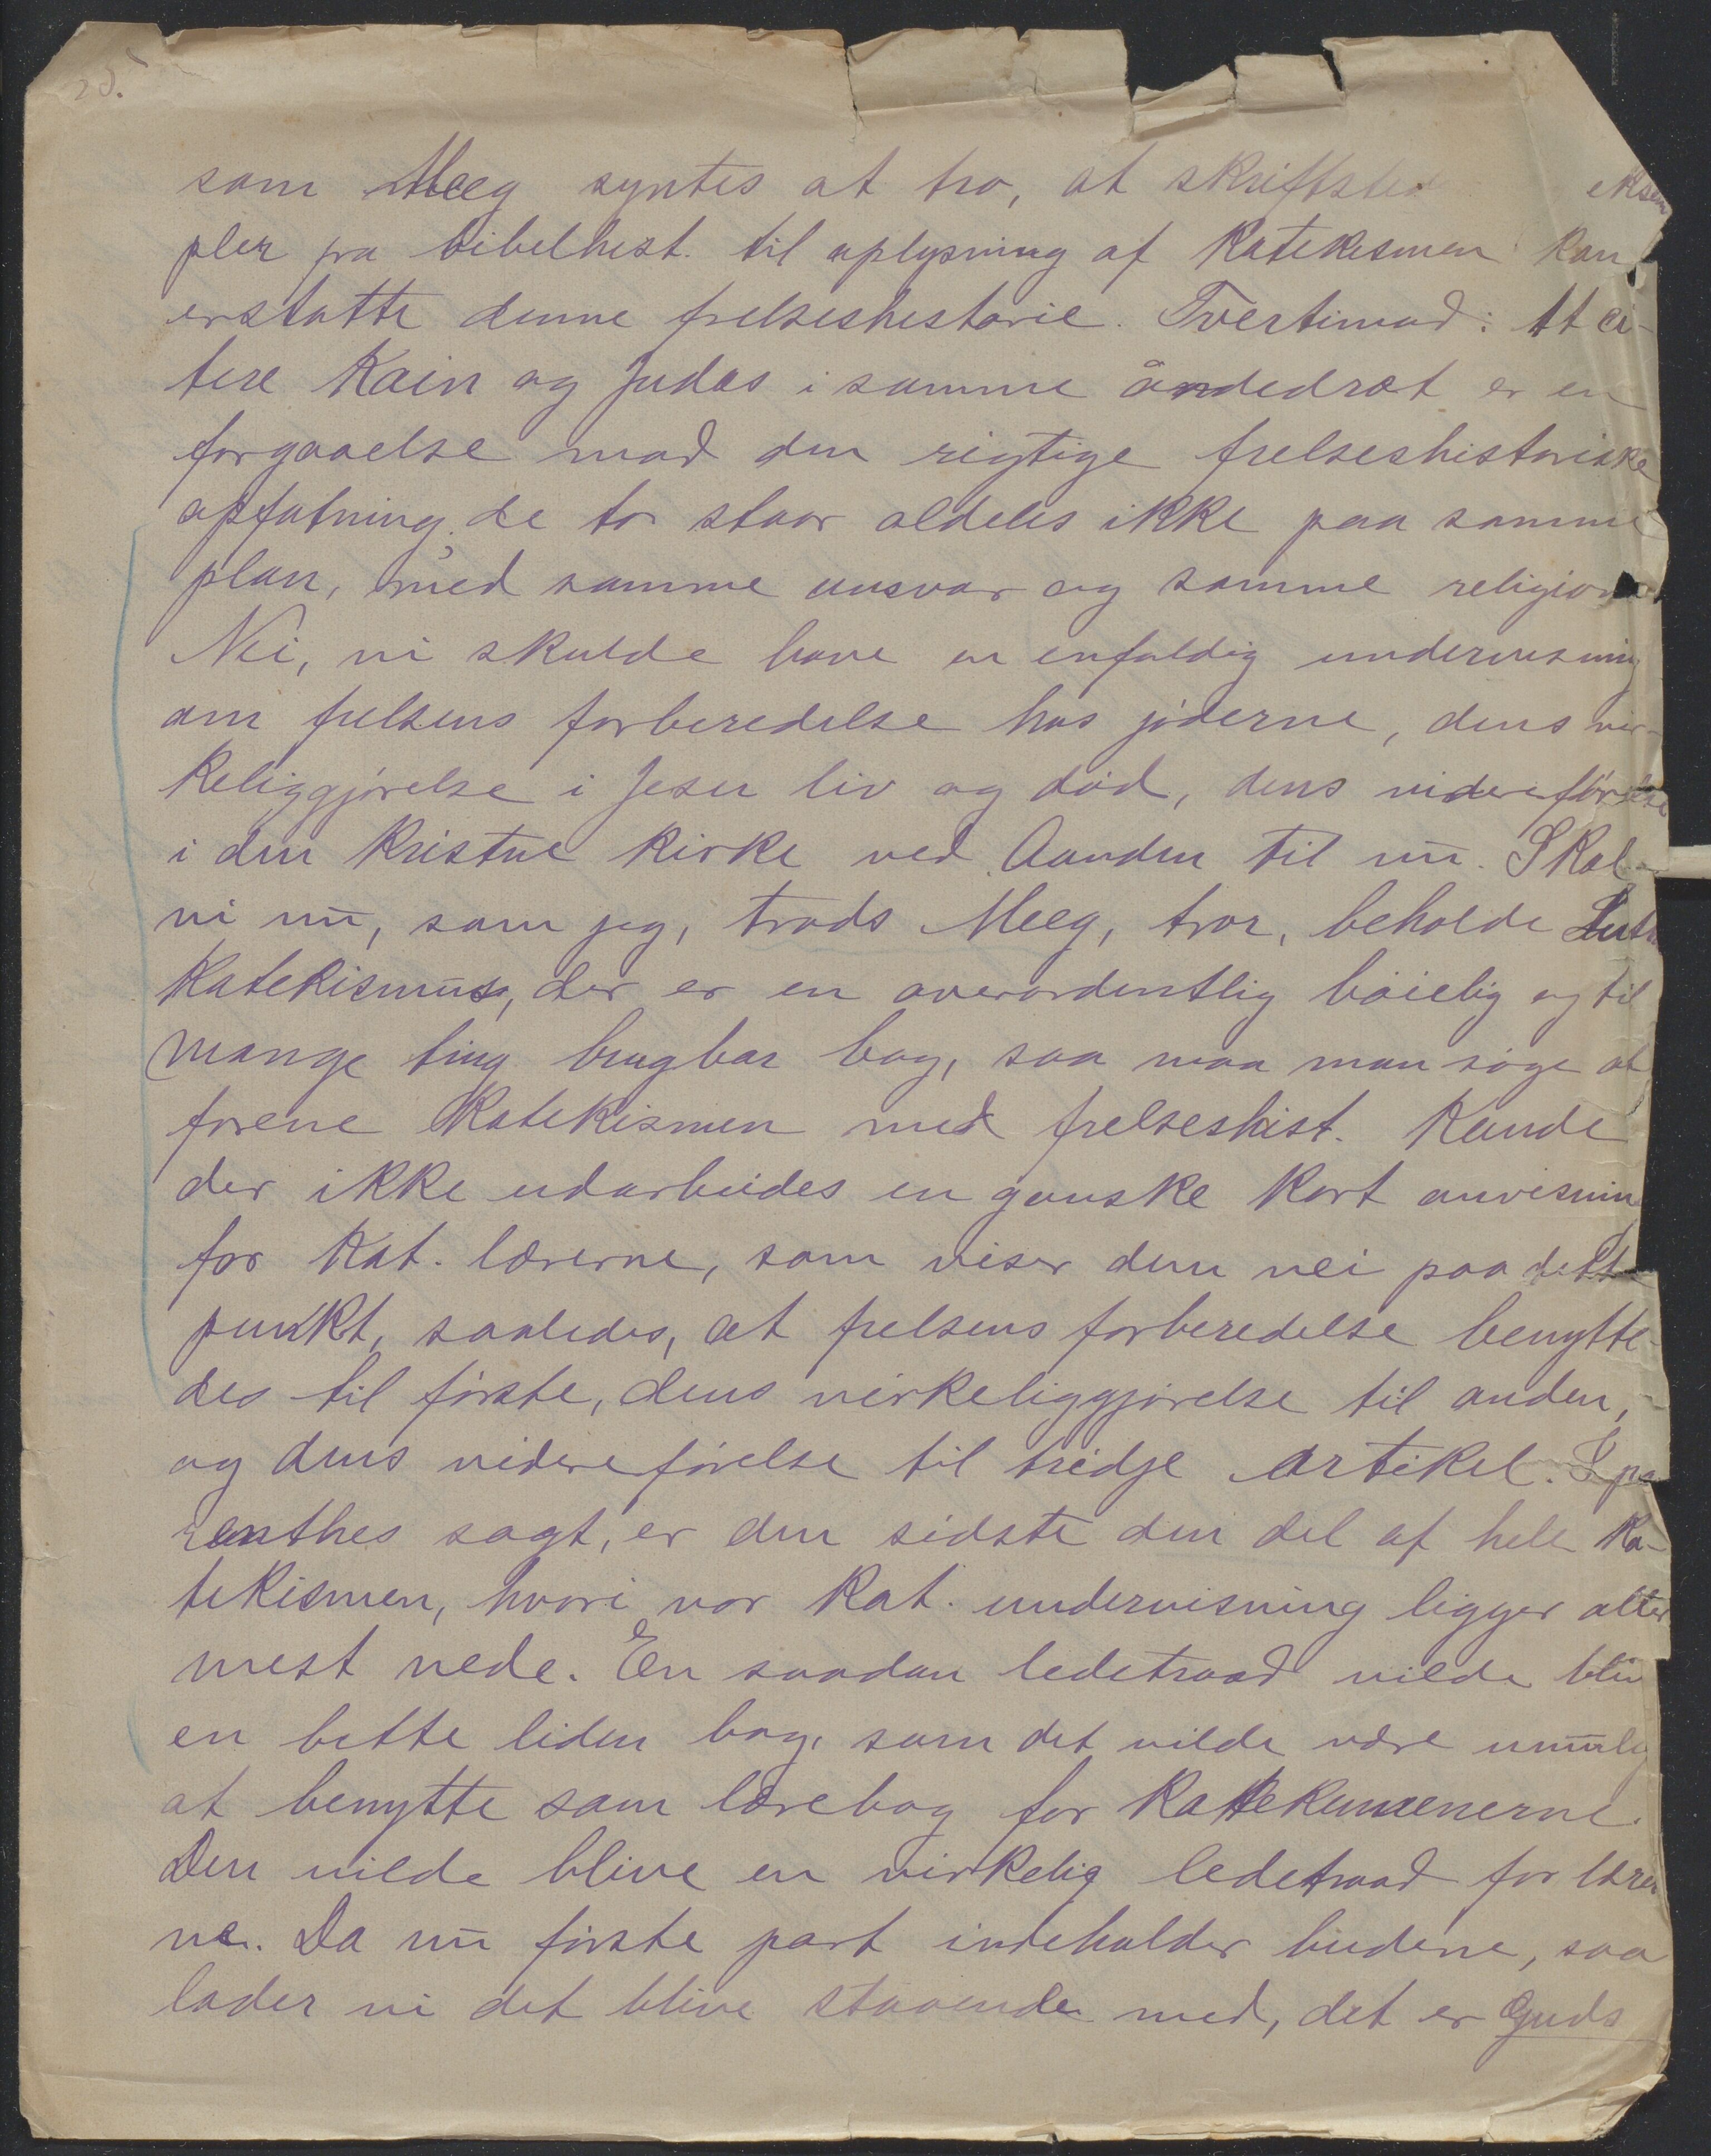 20.
som Meeg syntes at tro, at skriftsted eksem
pler fra bibelhist. til oplysning af Katekismen kan
erstatte denne frelseshistorie. Tvertimod: At ci-
tere Kain og Judas i samme åndedræt er en
forgaaelse mod den rigtige frelseshistoriske
opfatning, de to staar aldeles ikke paa samme
plan, med samme ansvar og samme religion
Nei, vi skulde have en enfoldig undervisning
om frelsens forberedelse hos jøderne, dens vir-
keliggjørelse i Jesu liv og død, dens videreførelse
i den kristne kirke ved Aanden til nu. Skal
vi nu, som jeg, trods Meeg, tror, beholde Luth
Katekismus, der er en overordentlig bøielig og til
mange ting brugbar bog, saa maa man søge at
forene Katekismen med frelseshist. Kunde
der ikke udarbeides en ganske kort anvisnin
for Kat. lærerne, som viser dem vei paa dette
punkt, saaledes, at frelsens forberedelse benytte-
des til første, dens virkeliggjørelse til anden,
og dens videreførelse til tredje Artikel. I pa
renthes sagt, er den sidste den del af hele Ka-
tekismen, hvori vor Kat. undervisning ligger aller
mest nede. En saadan ledetraad vilde bliv
en bitte liden bog, som det vilde være umulig
at benytte som lærebog for Katekumenerne.
Den vilde blive en virkelig ledetraad for lærer
ne. Da nu første part indeholder budene, saa
lader vi det blive staaende med, det er Guds